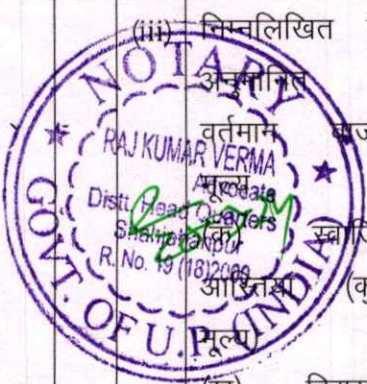 (iii) निम्नलिखित
अनुमानित
वर्तमाम बाज
मूल्य
स्वामि
आस्तियों (कु
मूल्य)
NOTARY
RAJ KUMAR VERMA
Advocate
Distt. Head Quarters
Shahjahanpur
R. No. 19 (18)2000
GOVT. OF U.P. (INDIA)